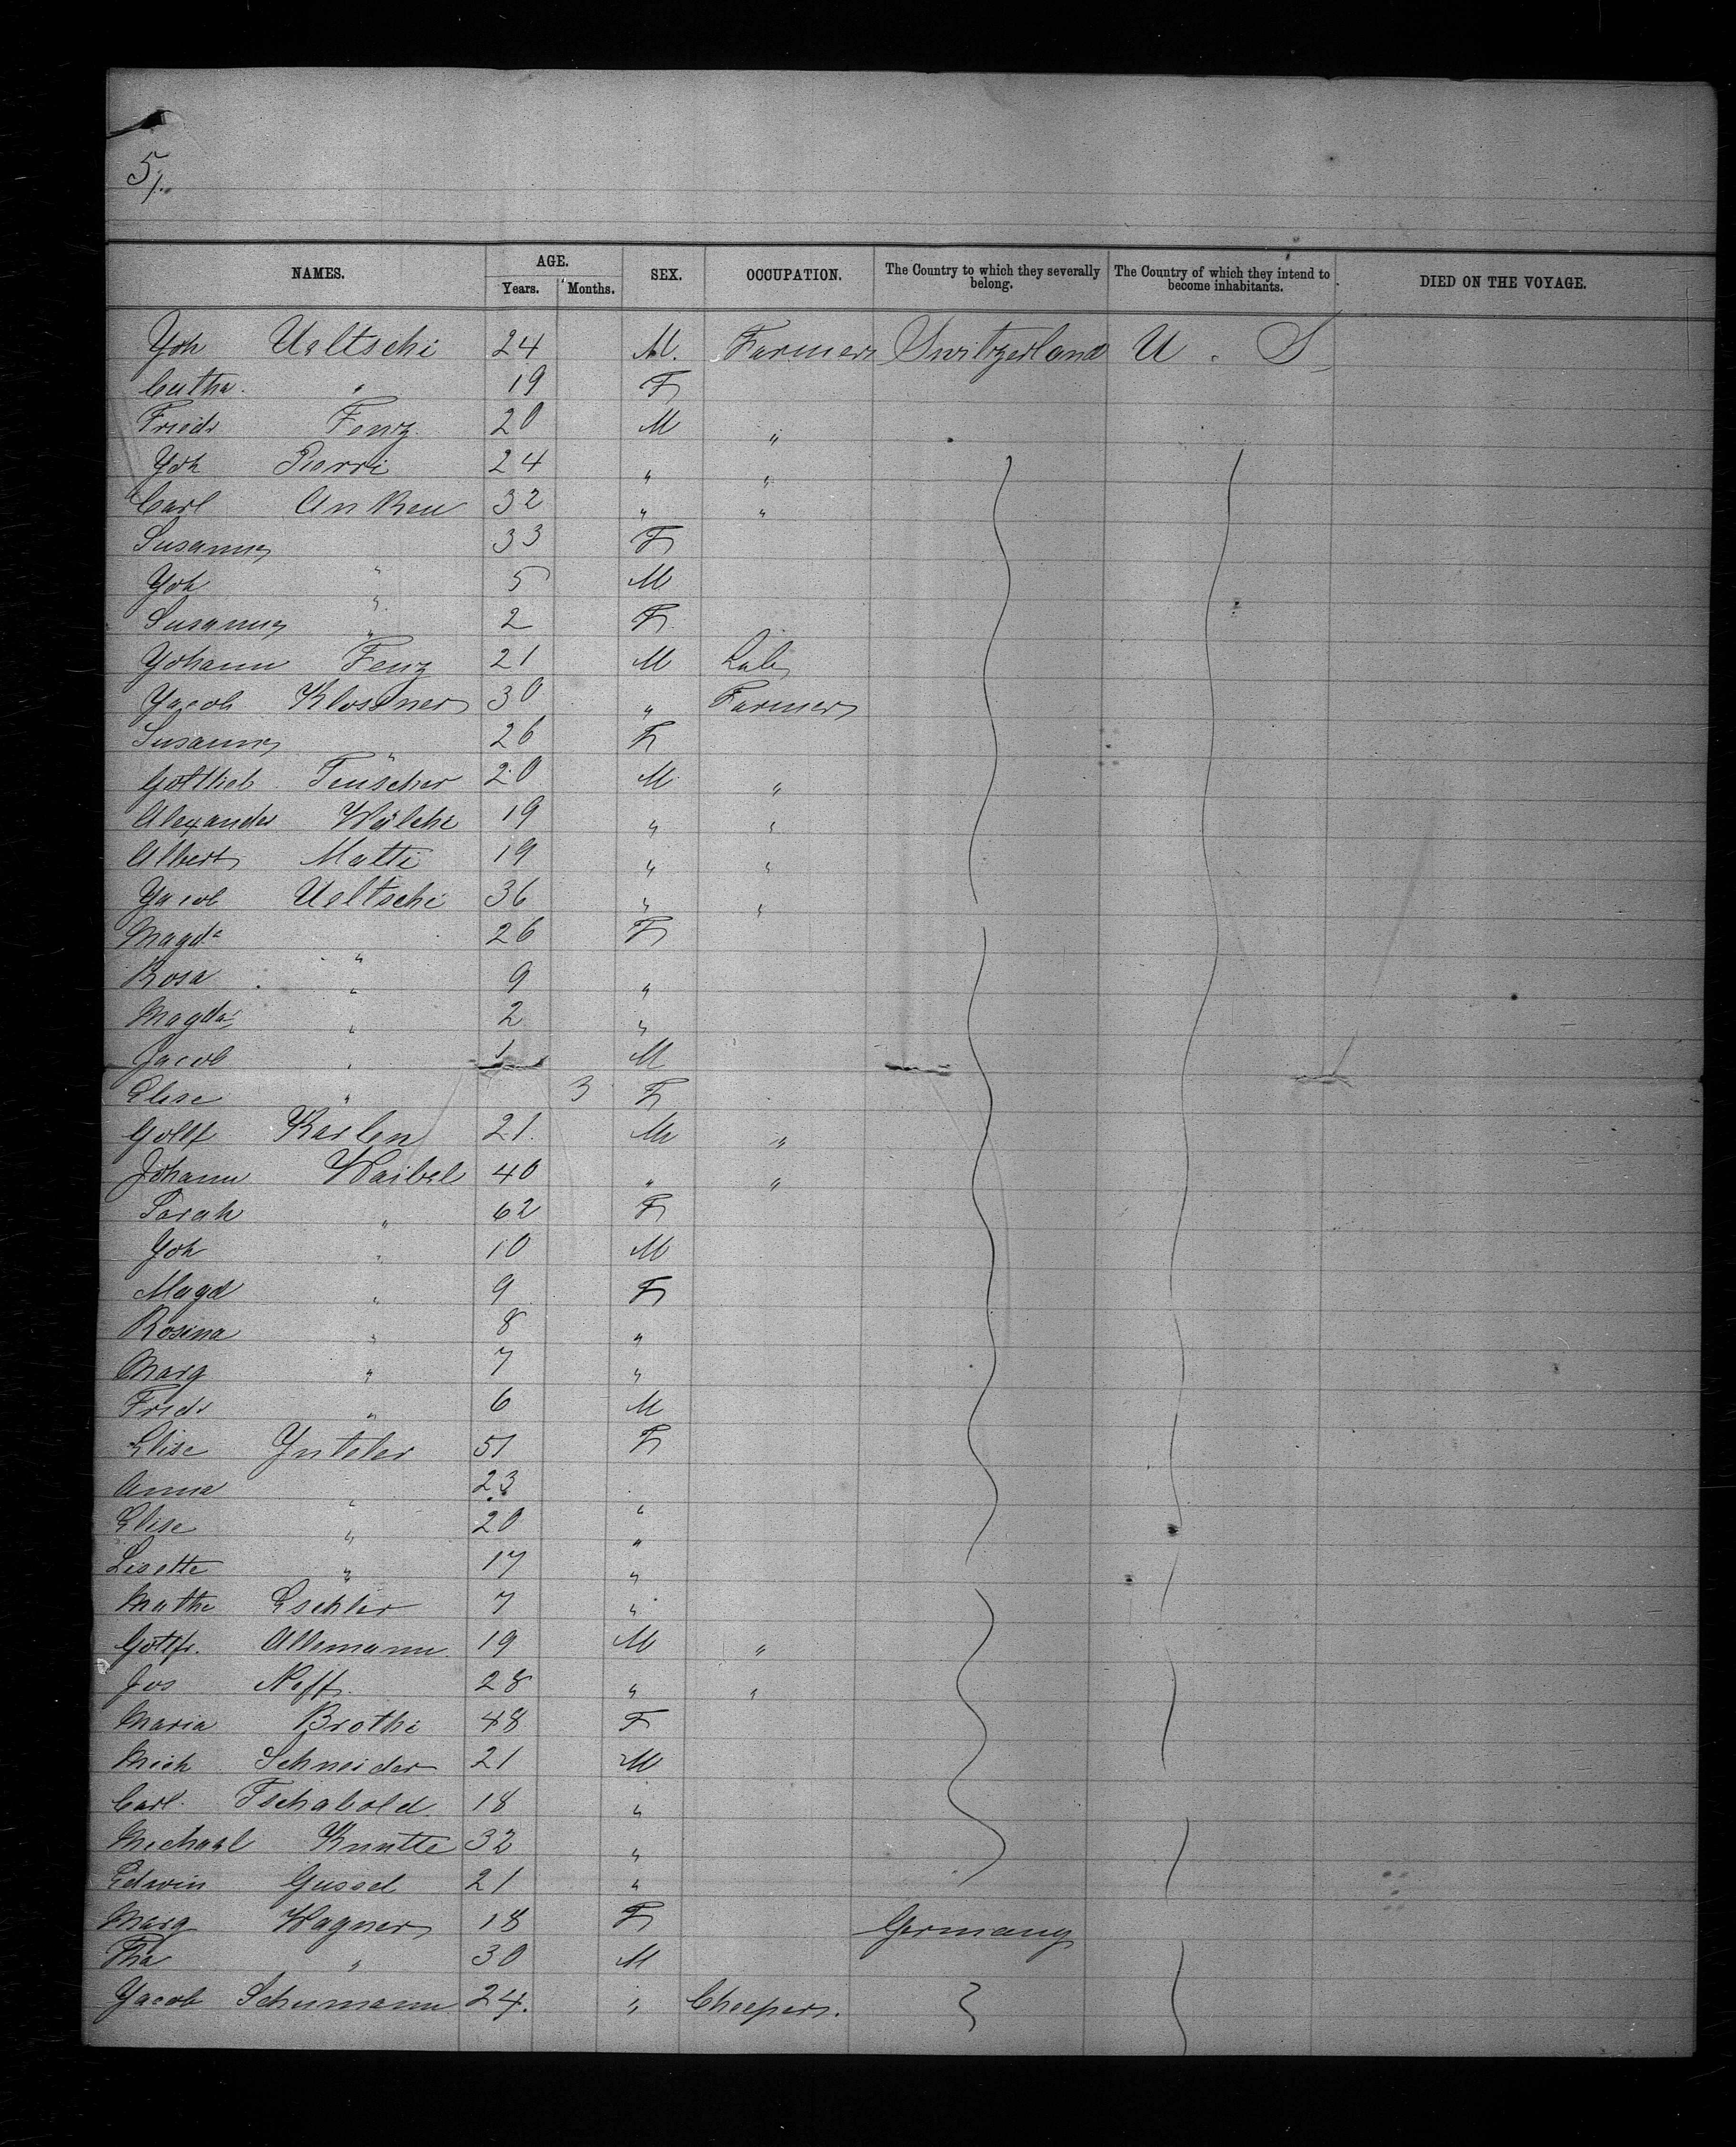 5/.
NAMES. AGE. Years. Months. SEX. OCCUPATION. The Country to which they severally belong. The Country of which they intend to become inhabitants. DIED ON THE VOYAGE.
Joh Ueltschi 24 M. Farmer Switzerland U. S
Catha. " 19 F
Friedr Fenz 20 M "
Joh Pierri 24 " "
Carl An Ken 32 " "
Susanna " 33 F
Joh " 5 M
Susanna " 2 F
Johann Fenz 21 M Lab
Jacob Klossner 30 " Farmer
Susanna " 26 F
Gottlieb Teuscher 20 M "
Alexander Wälchi 19 " "
Albert Matti 19 " "
Jacob Ueltschi 36 " "
Magda " 26 F
Rosa " 9 "
Magda " 2 "
Jacob " 1 M
Elise " 3 F
Gottf Karlen 21. M "
Johann Waibel 40 " "
Sarah " 62 F
Joh " 10 M
Magd " 9 F
Rosina " 8 "
Marg " 7 "
Friedr " 6 M
Elise 51 F
Anna " 23 "
Elise " 20 "
Lisette " 17 "
Mathe Eschler 7 "
Gottfr. Allemann 19 M "
Jos Neff 28 " "
Maria Brothi 48 F
Mich Schneider 21 M
Carl Tschabold 18 "
Michael Knutte 32 "
Edwin Gussel 21 "
Marg Wagner 18 F Germany
Tha " 30 M
Jacob Schumann 24. "